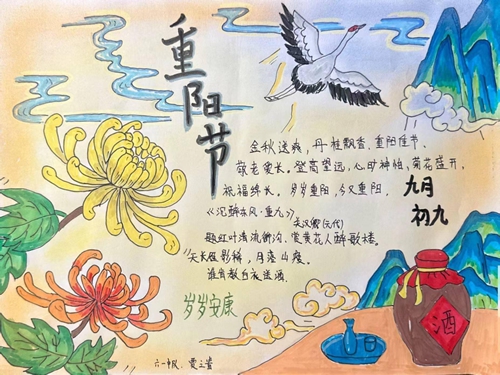 重阳节
金秋送爽，丹桂飘香，重阳佳节，
敬老爱长。登高望远，心旷神怡，菊花盛开，
祝福绵长。岁岁重阳，今又重阳，
九月
初九
《沉醉东风·重九》
关汉卿(元代)
题红叶清流御沟，赏黄花人醉歌楼。
天长雁影稀，月落山瘦。
谁肯教白衣送酒
岁岁安康
酒
六一中队